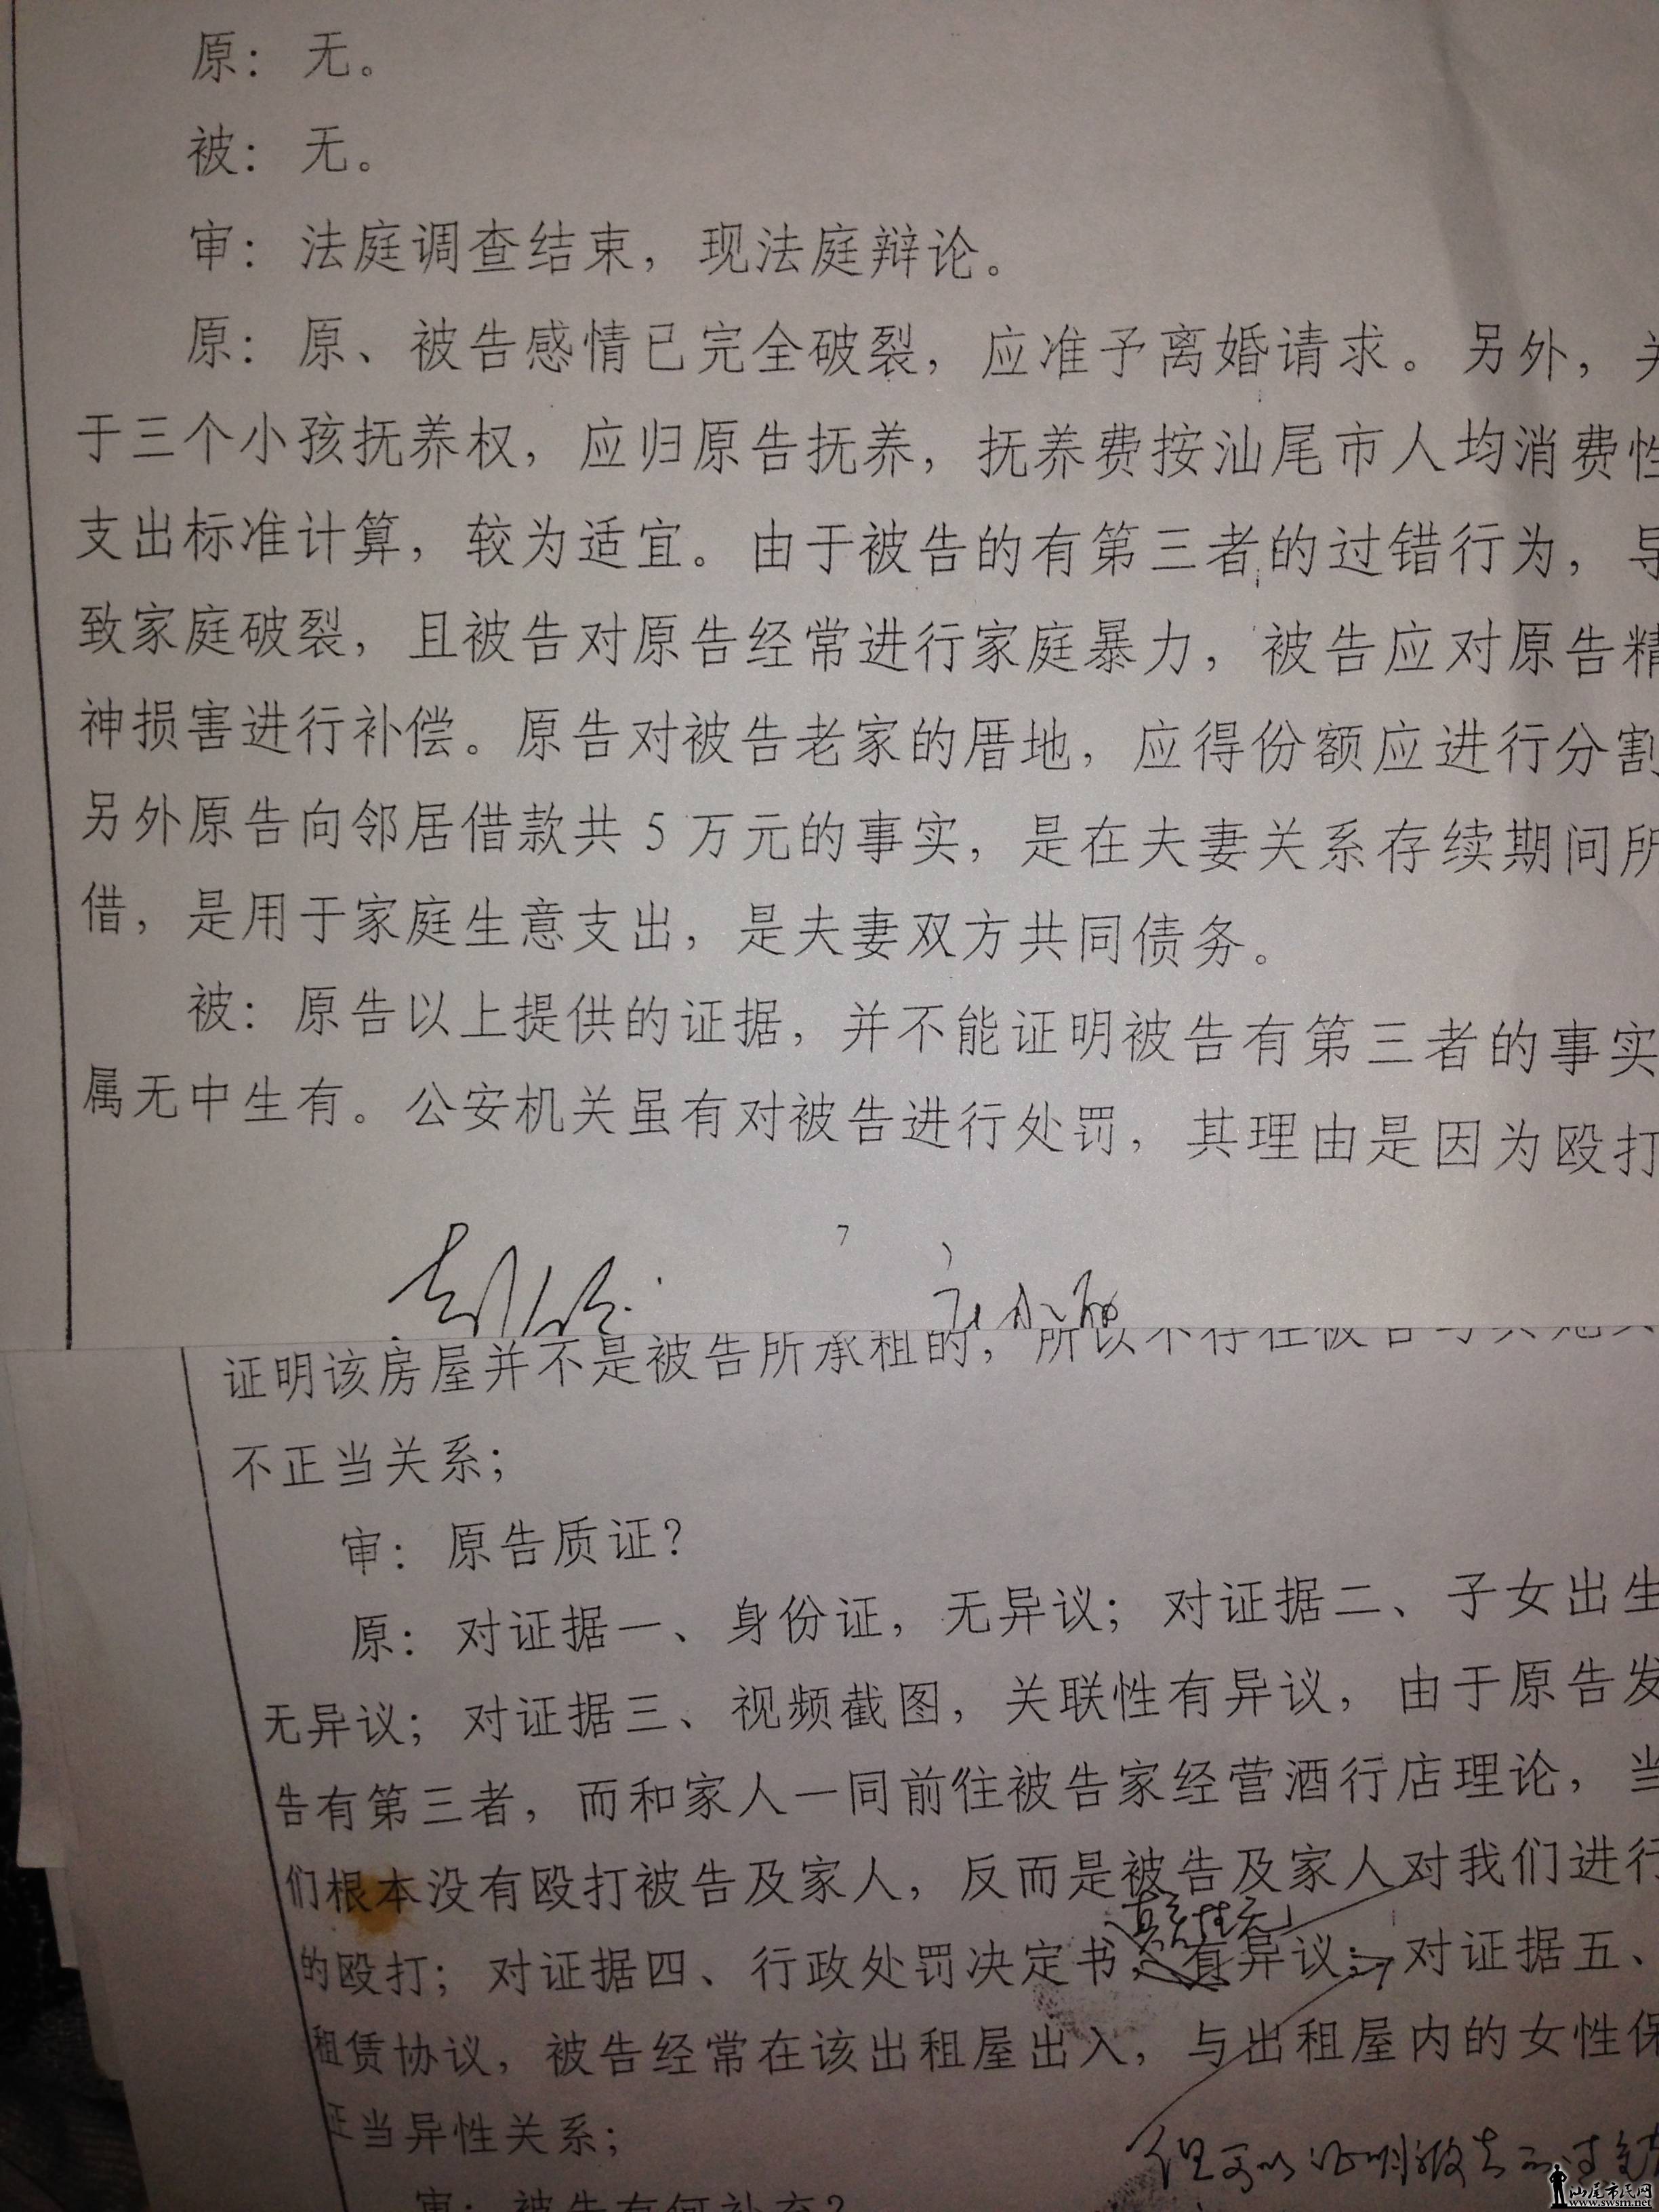 原：无。
被：无。
审：法庭调查结束，现法庭辩论。
原：原、被告感情已完全破裂，应准予离婚请求。另外，关
于三个小孩抚养权，应归原告抚养，抚养费按汕尾市人均消费性
支出标准计算，较为适宜。由于被告的有第三者的过错行为，导
致家庭破裂，且被告对原告经常进行家庭暴力，被告应对原告精
神损害进行补偿。原告对被告老家的厝地，应得份额应进行分割
另外原告向邻居借款共5万元的事实，是在夫妻关系存续期间所
借，是用于家庭生意支出，是夫妻双方共同债务。
被：原告以上提供的证据，并不能证明被告有第三者的事实
属无中生有。公安机关虽有对被告进行处罚，其理由是因为殴打
7
证明该房屋并不是被告所承租的，所以不存在被告与其他
不正当关系；
审：原告质证？
原：对证据一、身份证，无异议；对证据二、子女出生
无异议；对证据三、视频截图，关联性有异议，由于原告发
告有第三者，而和家人一同前往被告家经营酒行店理论，当
们根本没有殴打被告及家人，反而是被告及家人对我们进行
真实性无
的殴打；对证据四、行政处罚决定书，有异议；对证据五、
租赁协议，被告经常在该出租屋出入，与出租屋内的女性保
正当异性关系；
但可以证明被告不过
审：被告有何补充？
汕尾市民网
www.swsm.net